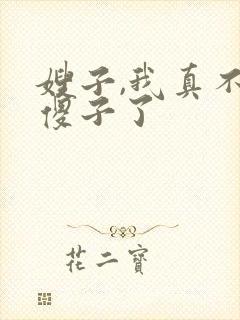 嫂子,我真不
傻子了
花二寶